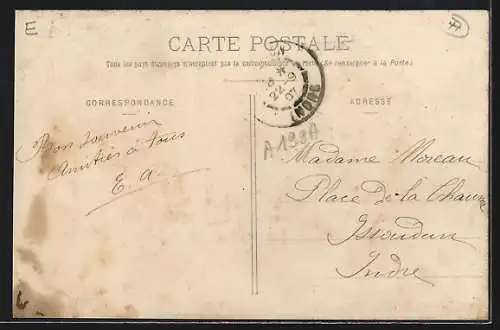 E
CARTE POSTALE
Tous les pays étrangers n'acceptent pas la correspondance (Se renseigner à la Poste)
CORRESPONDANCE
ADRESSE
22-9
07
INDRE
A 138A
Bon souvenir
Amitiés à tous
E. A.
Madame Moreau
Place De la Chaume
Issoudun
Indre